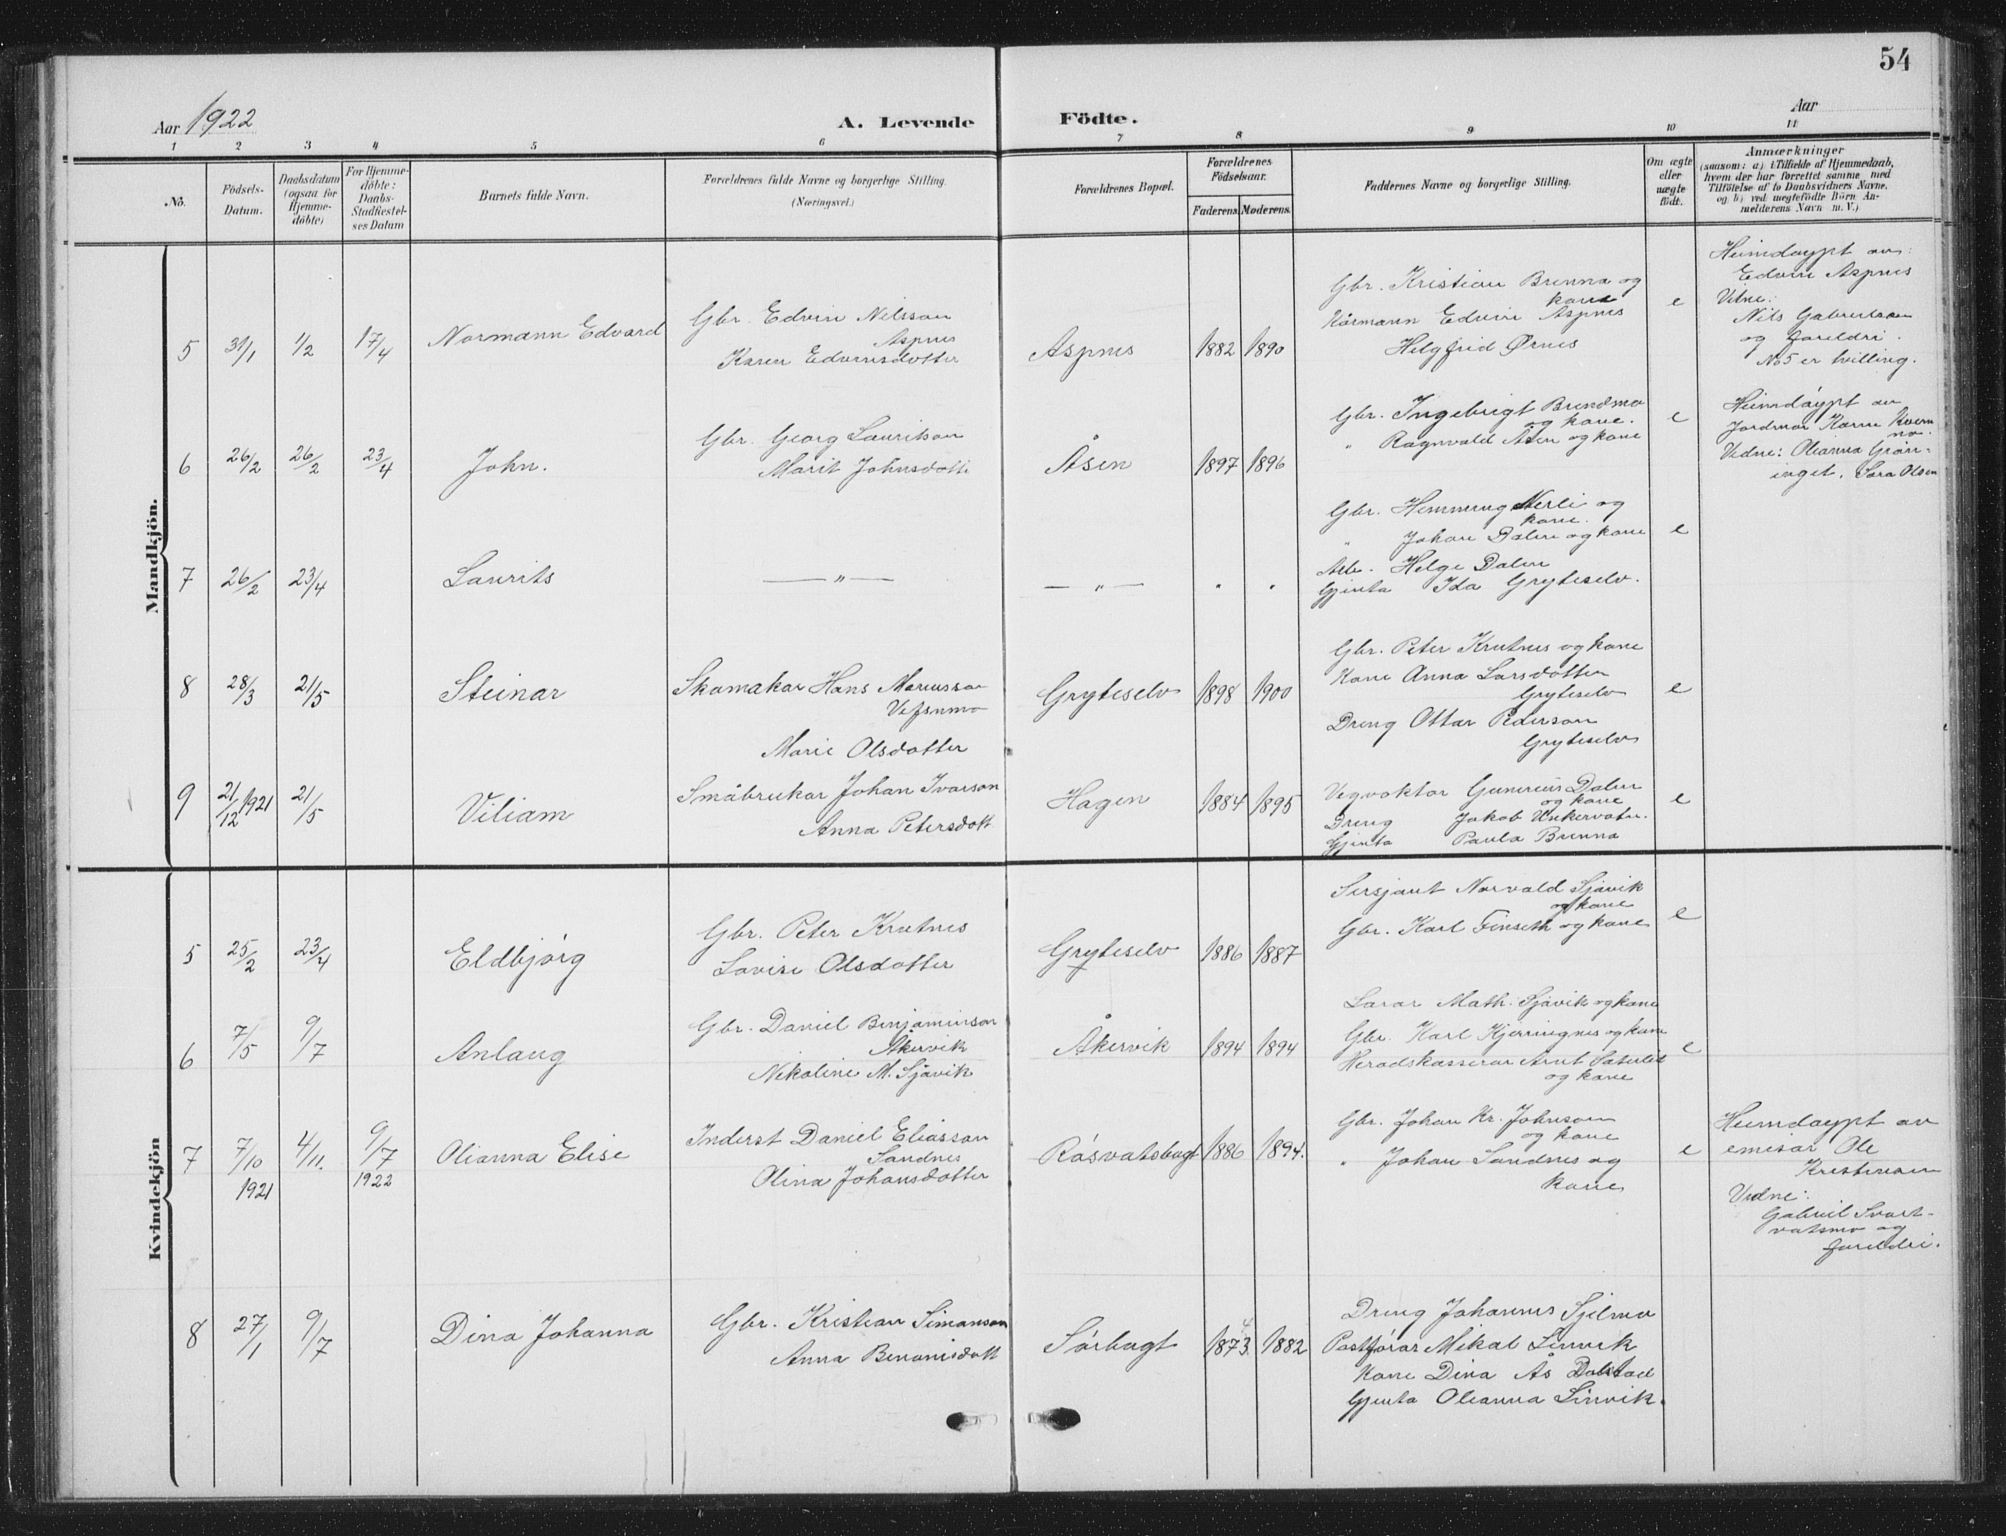 54
Aar 1922
A. Levende Födte.
Aar
1 2 3 4 5 6 7 8 9 10 11
No.
Födsels-Datum.
Daabsdatum (ogsaa for Hjemme-döbte)
For Hjemme-döbte: Daabs-Stadfæstelses Datum
Barnets fulde Navn.
Forældrenes fulde Navne og borgerlige Stilling. (Næringsvei.)
Forældrenes Bopæl.
Forældrenes Födselsaar.
Faderens. Moderens.
Faddernes Navne og borgerlige Stilling.
Om ægte eller uægte født.
Anmærkninger
(saasom: a) i Tilfælde af Hjemmedaab,
hvem der har forrettet samme med
Tilföielse af to Daabsvidners Navne,
og b) ved uægtefödte Börn An-
melderens Navn m. V.)
Mandkjön.
5 31/1 1/2 17/4 Normann Edvard
Gbr. Edvin Nilsson
Aspnes
Karen Edvinsdotter
Aspnes 1882 1890
Gbr. Kristian Brenna og
kone
Kårmann Edvin Aspnes
Helgfrid Ørnes
e
Heimdøypt av:
Edvin Aspnes
Vitne:
Nils Gabrielsen
og foreldri.
No 5 er tvilling.
6 26/2 26/2 23/4 John.
Gbr. Georg Lauritson
Marit Johnsdott.
Åsen 1897 1896
Gbr. Ingebrigt Brendmo
og kone.
" Ragnvald Åsen og kone
e
Heimdøypt av
Jordmor Karen Kvern
mo.
Vidne: Olianna Grøn-
inget. Sara Olsen
7 26/2 23/4 Laurits
— " —
— " — " "
Gbr. Hemming Nerli og
kone.
" Johan Dalen og kone
Arb. Helge Dalen
Gjenta Ida Gryteselv.
e
8 28/3 21/5 Steinar
Skomakar Hans Mariusson
Vefsnmo
Marie Olsdotter
Gryteselv 1898 1900
Gbr. Peter Krutnes og kone
Kone Anna Larsdotter
Gryteselv
Dreng Ottar Pederson
Gryteselv
e
9 21/12 1921 21/5 Viliam
Småbrukar Johan Ivarson
Anna Petersdott
Hagen 1884 1895
Vegvoktar Gunerius Dalen
og kone
Dreng Jakob Unkervatn.
Gjenta Paula Brenna
e
Kvindekjön
5 25/2 23/4 Eldbjørg
Gbr. Peter Krutnes
Lovise Olsdotter
Gryteselv 1886 1887
Sersjant Norvald Sjåvik
og kone
Gbr. Karl Finseth og kone
e
6 7/5 9/7 Anlaug
Gbr. Daniel Benjaminson
Åkervik
Nikoline M. Sjåvik
Åkervik 1894 1894
Lærar Math. Sjåvik og kone
Gbr. Karl Kjerringnes og kone
Heradskasserar Arnt
og kone
e
7 7/10 1921 4/11. 9/7 1922 Olianna Elise
Inderst Daniel Eliasson
Sandnes
Olina Johansdotter
Røsvatsbugt 1886 1894.
Gbr. Johan Kr. Johnson
og kone
" Johan Sandnes og
kone
e
Heimdøypt av
emisær Ole
Kristensen
Vidne:
Gabriel Svart-
vatsmo og
foreldri.
8 27/1 9/7 Dina Johanna
Gbr. Kristian Simonson
Anna Benonisdott
Sørbugt 1873. 4 1882
Dreng Johannes Sjelmo
Postførar Mikal Linvik
Kone Dina Ås Dalstad
Gjenta Olianna Linvik.